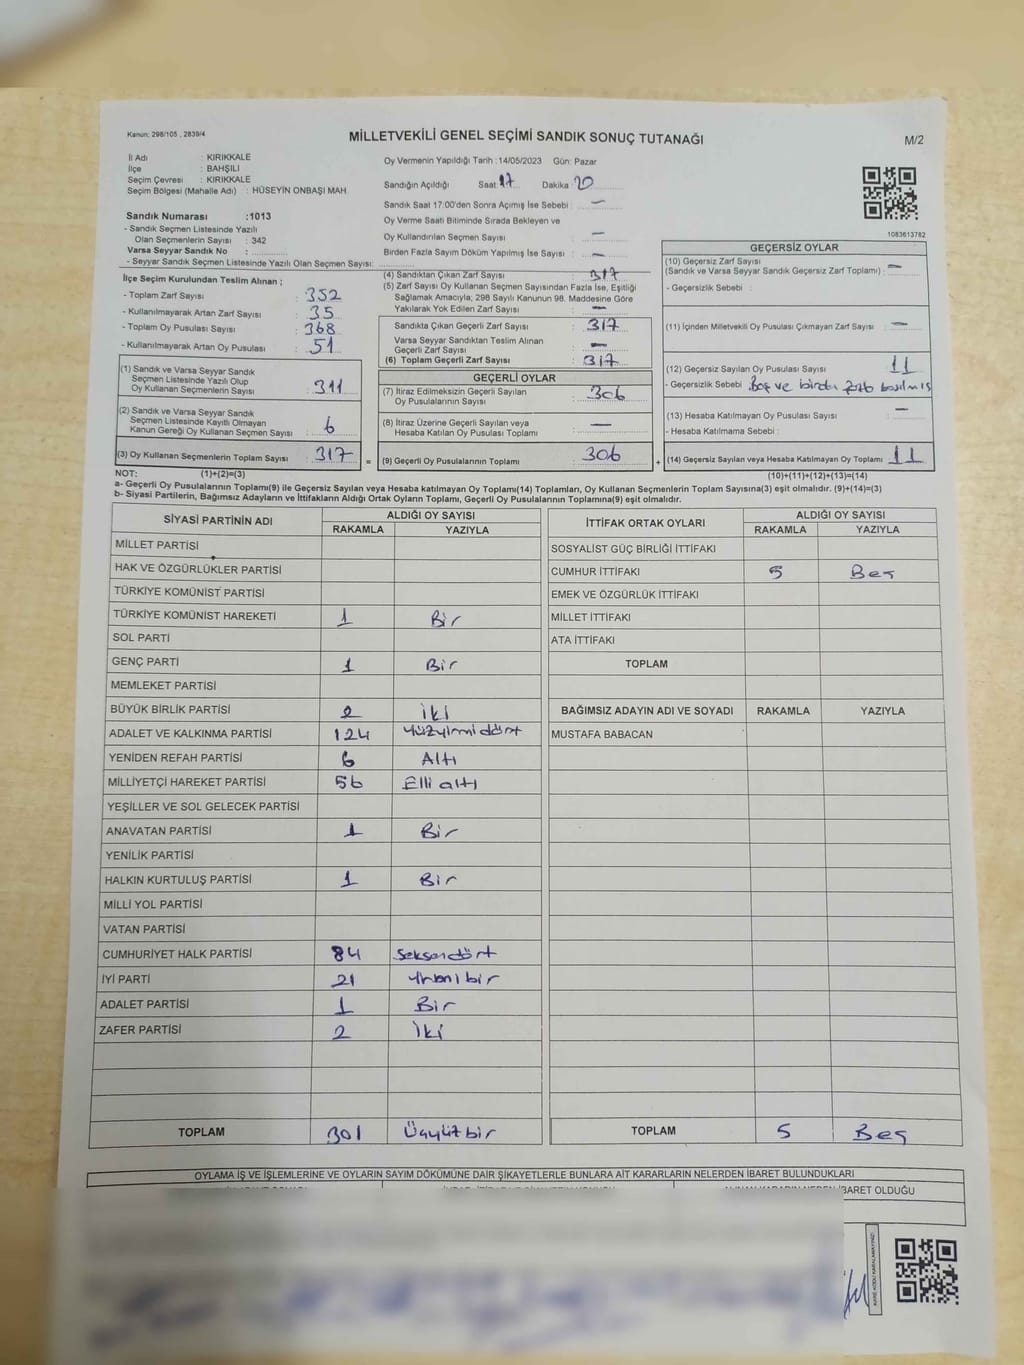 Kanun: 298/105 , 2839/4
MİLLETVEKİLİ GENEL SEÇİMİ SANDIK SONUÇ TUTANAĞI
M/2
İl Adı : KIRIKKALE
İlçe : BAHŞILI
Seçim Çevresi : KIRIKKALE
Seçim Bölgesi (Mahalle Adı) : HÜSEYİN ONBAŞI MAH.
Sandık Numarası :1013
- Sandık Seçmen Listesinde Yazılı
Olan Seçmenlerin Sayısı : 342
Varsa Seyyar Sandık No :
- Seyyar Sandık Seçmen Listesinde Yazılı Olan Seçmen Sayısı:
Oy Vermenin Yapıldığı Tarih :14/05/2023 Gün: Pazar
Sandığın Açıldığı Saat 17 Dakika : 20
Sandık Saat 17:00'den Sonra Açımış İse Sebebi : —
Oy Verme Saati Bitiminde Sırada Bekleyen ve
Oy Kullandırılan Seçmen Sayısı : —
Birden Fazla Sayım Döküm Yapılmış İse Sayısı : —
1083613782
İlçe Seçim Kurulundan Teslim Alınan ;
- Toplam Zarf Sayısı : 352
- Kullanılmayarak Artan Zarf Sayısı : 35
- Toplam Oy Pusulası Sayısı : 368
- Kullanılmayarak Artan Oy Pusulası : 51
(1) Sandık ve Varsa Seyyar Sandık
Seçmen Listesinde Yazılı Olup
Oy Kullanan Seçmenlerin Sayısı : 311
(2) Sandık ve Varsa Seyyar Sandık
Seçmen Listesinde Kayıtlı Olmayan
Kanun Gereği Oy Kullanan Seçmen Sayısı : 6
(3) Oy Kullanan Seçmenlerin Toplam Sayısı : 317
(4) Sandıktan Çıkan Zarf Sayısı : 317
(5) Zarf Sayısı Oy Kullanan Seçmen Sayısından Fazla İse, Eşitliği
Sağlamak Amacıyla; 298 Sayılı Kanunun 98. Maddesine Göre
Yakılarak Yok Edilen Zarf Sayısı : —
Sandıkta Çıkan Geçerli Zarf Sayısı : 317
Varsa Seyyar Sandıktan Teslim Alınan
Geçerli Zarf Sayısı : —
(6) Toplam Geçerli Zarf Sayısı : 317
GEÇERLİ OYLAR
(7) İtiraz Edilmeksizin Geçerli Sayılan
Oy Pusulalarının Sayısı : 306
(8) İtiraz Üzerine Geçerli Sayılan veya
Hesaba Katılan Oy Pusulası Toplamı : —
= (9) Geçerli Oy Pusulalarının Toplamı : 306
GEÇERSİZ OYLAR
(10) Geçersiz Zarf Sayısı
(Sandık ve Varsa Seyyar Sandık Geçersiz Zarf Toplamı) : —
- Geçersizlik Sebebi :
(11) İçinden Milletvekili Oy Pusulası Çıkmayan Zarf Sayısı : —
(12) Geçersiz Sayılan Oy Pusulası Sayısı : 11
- Geçersizlik Sebebi : Boş ve birden fazla basılmış
(13) Hesaba Katılmayan Oy Pusulası Sayısı : —
- Hesaba Katılmama Sebebi :
+ (14) Geçersiz Sayılan veya Hesaba Katılmayan Oy Toplamı : 11
NOT: (1)+(2)=(3) (10)+(11)+(12)+(13)=(14)
a- Geçerli Oy Pusulalarının Toplamı(9) ile Geçersiz Sayılan veya Hesaba katılmayan Oy Toplamı(14) Toplamları, Oy Kullanan Seçmenlerin Toplam Sayısına(3) eşit olmalıdır. (9)+(14)=(3)
b- Siyasi Partilerin, Bağımsız Adayların ve İttifakların Aldığı Ortak Oyların Toplamı, Geçerli Oy Pusulalarının Toplamına(9) eşit olmalıdır.
SİYASİ PARTİNİN ADI ALDIĞI OY SAYISI
RAKAMLA YAZIYLA
MİLLET PARTİSİ
HAK VE ÖZGÜRLÜKLER PARTİSİ
TÜRKİYE KOMÜNİST PARTİSİ
TÜRKİYE KOMÜNİST HAREKETİ 1 Bir
SOL PARTİ
GENÇ PARTİ 1 Bir
MEMLEKET PARTİSİ
BÜYÜK BİRLİK PARTİSİ 2 İki
ADALET VE KALKINMA PARTİSİ 124 Yüzyirmidört
YENİDEN REFAH PARTİSİ 6 Altı
MİLLİYETÇİ HAREKET PARTİSİ 56 Elli altı
YEŞİLLER VE SOL GELECEK PARTİSİ
ANAVATAN PARTİSİ 1 Bir
YENİLİK PARTİSİ
HALKIN KURTULUŞ PARTİSİ 1 Bir
MİLLİ YOL PARTİSİ
VATAN PARTİSİ
CUMHURİYET HALK PARTİSİ 84 Seksendört
İYİ PARTİ 21 Yirmi bir
ADALET PARTİSİ 1 Bir
ZAFER PARTİSİ 2 İki
TOPLAM 301 Üçyüzbir
İTTİFAK ORTAK OYLARI ALDIĞI OY SAYISI
RAKAMLA YAZIYLA
SOSYALİST GÜÇ BİRLİĞİ İTTİFAKI
CUMHUR İTTİFAKI 5 Beş
EMEK VE ÖZGÜRLÜK İTTİFAKI
MİLLET İTTİFAKI
ATA İTTİFAKI
TOPLAM
BAĞIMSIZ ADAYIN ADI VE SOYADI RAKAMLA YAZIYLA
MUSTAFA BABACAN
TOPLAM 5 Beş
OYLAMA İŞ VE İŞLEMLERİNE VE OYLARIN SAYIM DÖKÜMÜNE DAİR ŞİKAYETLERLE BUNLARA AİT KARARLARIN NELERDEN İBARET BULUNDUKLARI
İBARET OLDUĞU